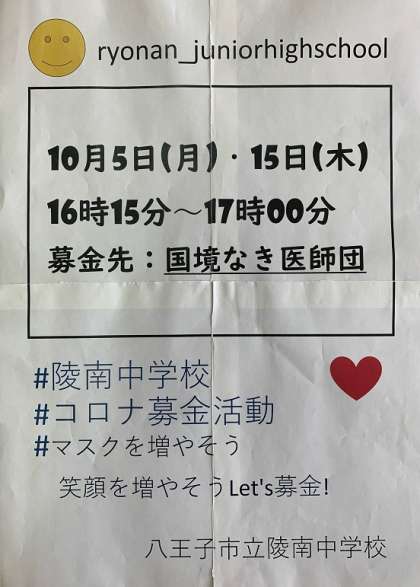 ryonan_juniorhighschool
10月5日(月)・15日(木)
16時15分～17時00分
募金先：国境なき医師団
#陵南中学校
#コロナ募金活動
#マスクを増やそう
笑顔を増やそうLet's募金!
八王子市立陵南中学校